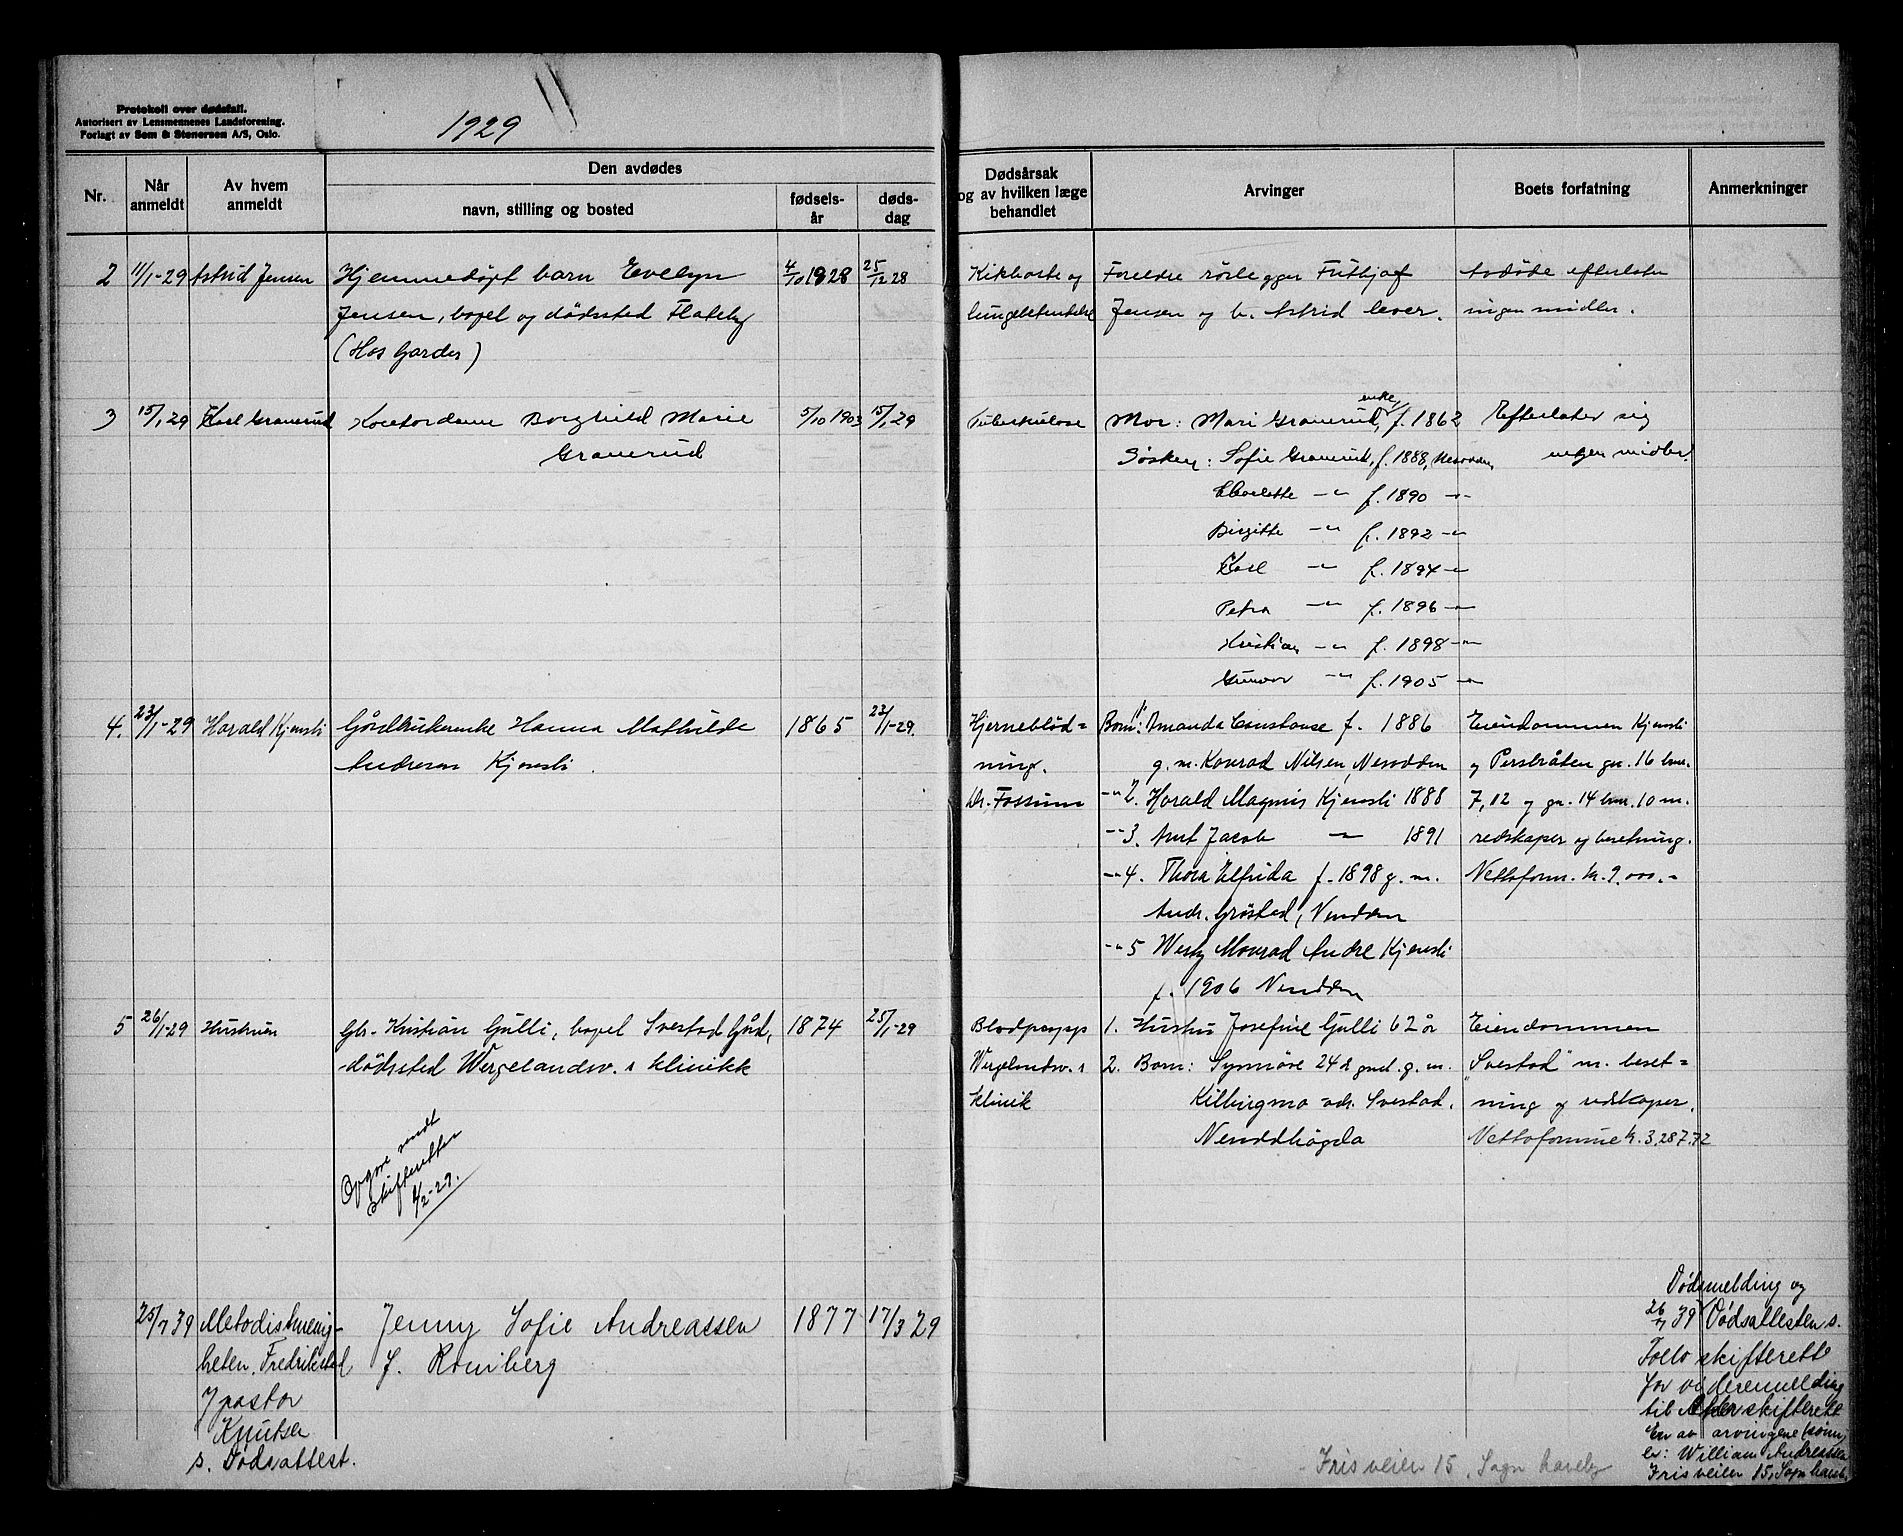 Protokoll over dødsfall.
Autorisert av Lensmennenes Landsforening.
Forlagt av Sem & Stenersen A/S, Oslo.
1929
Nr.
Når
anmeldt
Av hvem
anmeldt
Den avdødes
navn, stilling og bosted
fødsels-
år
døds-
dag
Dødsårsak
og av hvilken læge
behandlet
Arvinger
Boets forfatning
Anmerkninger
2 11/1-29 Astrid Jensen Hjemmedøpt barn Evelyn 4/10 1928 25/12 28 Kikhoste og Foreldre rørlegger Fritjof Avdøde efterlater
Jensen, bopel og dødssted Flateby lungebetendelse Jensen og h. Astrid lever. ingen midler.
(Hos Garder)
3 15/1 29 Karl Granerud Borghild Marie 5/10 1903 15/1 29 Tuberkulose Mor: Mari Granerud, enke, f. 1862 Efterlater sig
Granerud Søsken: Sofie Granerud, f. 1888, Nesodden, ingen midler.
f. 1890 -"-
Birgitte -"- f. 1892 -"-
Karl -"- f. 1894 -"-
Petra -"- f. 1896 -"-
Kristian -"- f. 1898 -"-
Gunvor -"- f. 1905 -"-
4. 23/1-29 Harald Kjensli Gårdbrukerenke Hanna Mathilde 1865 22/1-29. Hjerneblød= Barn: 1. Amanda Constanse f. 1886 Eiendommen Kjensli
Andreas Kjensli. ning. g. m. Konrad Nilsen, Nesodden og Persbråten gn. 16 bnr.
Dr. Fossum -"- 2. Harald Magnus Kjensli 1888 7, 12 og gn. 14 bnr. 10 m.
-"- 3. Arnt Jacob -"- 1891 redskaper og besetning.
-"- 4. Thora Elfrida f. 1898 g. m. Nettoform. kr. 9.000.-
Andr. Grøstad, Nesodden
-"- 5 Monrad Andre Kjensli
f. 1906 Nesodden
5 26/1-29 Hustruen Gbr. Kristian Gulli, bopel Svestad Gård, 1874 25/1-29 Blodpropp 1. Hustru Josefine Gulli 62 år Eiendommen
dødssted Wergelandsv.s klinikk Wergelandsv.s 2. Barn: Synnøve 24 år g. m. "Svestad" m. beset=
klinik adr. Svestad, ning og redskaper.
Nesoddhøgda Nettoformue kr. 3.287.72
Opgave sendt
skifteretten
4/2-29.
25/7 39 Metodistmenig- Jenny Sofie Andreassen 1877 17/3 29
heten, Fredrikstad f. Romberg
v/ pastor
Knutsen
s. Dødsattest.
Dødsmelding og
26/7 39 Dødsattesten s.
Follo skifterett
for videremelding
til Aker skifterett
En av arvingene (sønn)
er: William Andreassen
Frisveien 15, Sogn haveby
- Frisveien 15, Sogn haveby